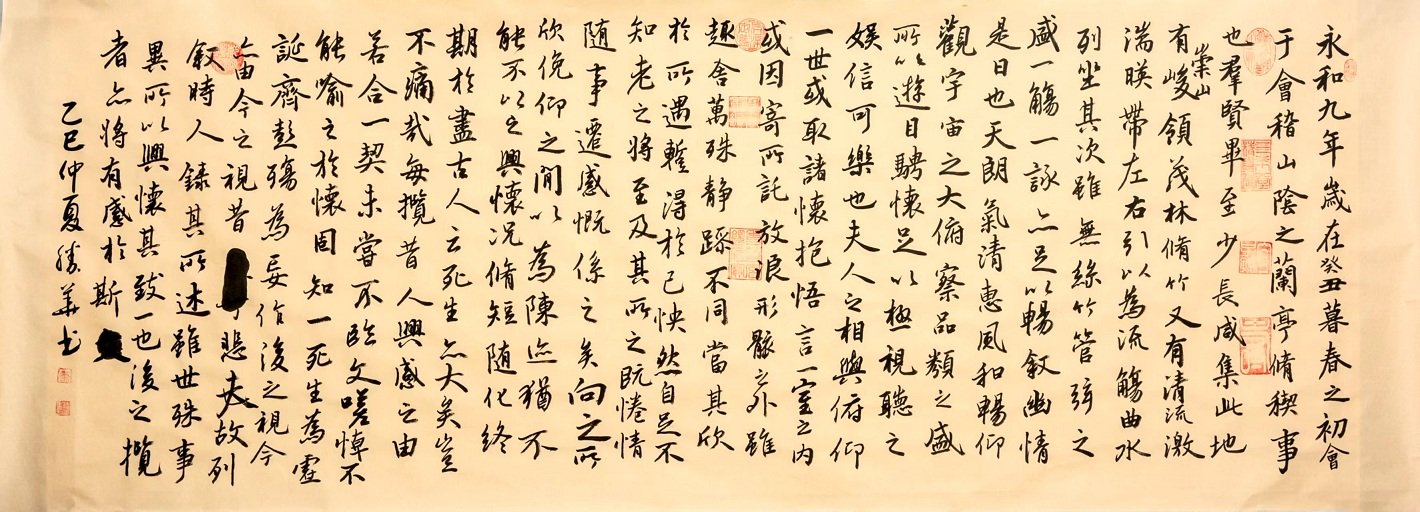 永和九年歲在癸丑暮春之初會
于會稽山陰之蘭亭脩稧事
也羣賢畢至少長咸集此地
有崇山峻領茂林脩竹又有清流激
湍暎帶左右引以為流觴曲水
列坐其次雖無絲竹管弦之
盛一觴一詠亦足以暢敘幽情
是日也天朗氣清惠風和暢仰
觀宇宙之大俯察品類之盛
所以遊目騁懷足以極視聽之
娛信可樂也夫人之相與俯仰
一世或取諸懷抱悟言一室之內
或因寄所託放浪形骸之外雖
趣舍萬殊靜躁不同當其欣
於所遇蹔得於己怏然自足不
知老之將至及其所之既惓情
隨事遷感慨係之矣向之所
欣俛仰之閒以為陳迹猶不
能不以之興懷況脩短隨化終
期於盡古人云死生亦大矣豈
不痛哉每攬昔人興感之由
若合一契未嘗不臨文嗟悼不
能喻之於懷固知一死生為虛
誕齊彭殤為妄作後之視今
亦由今之視昔悲夫故列
敘時人錄其所述雖世殊事
異所以興懷其致一也後之攬
者亦將有感於斯
乙巳仲夏勝華书